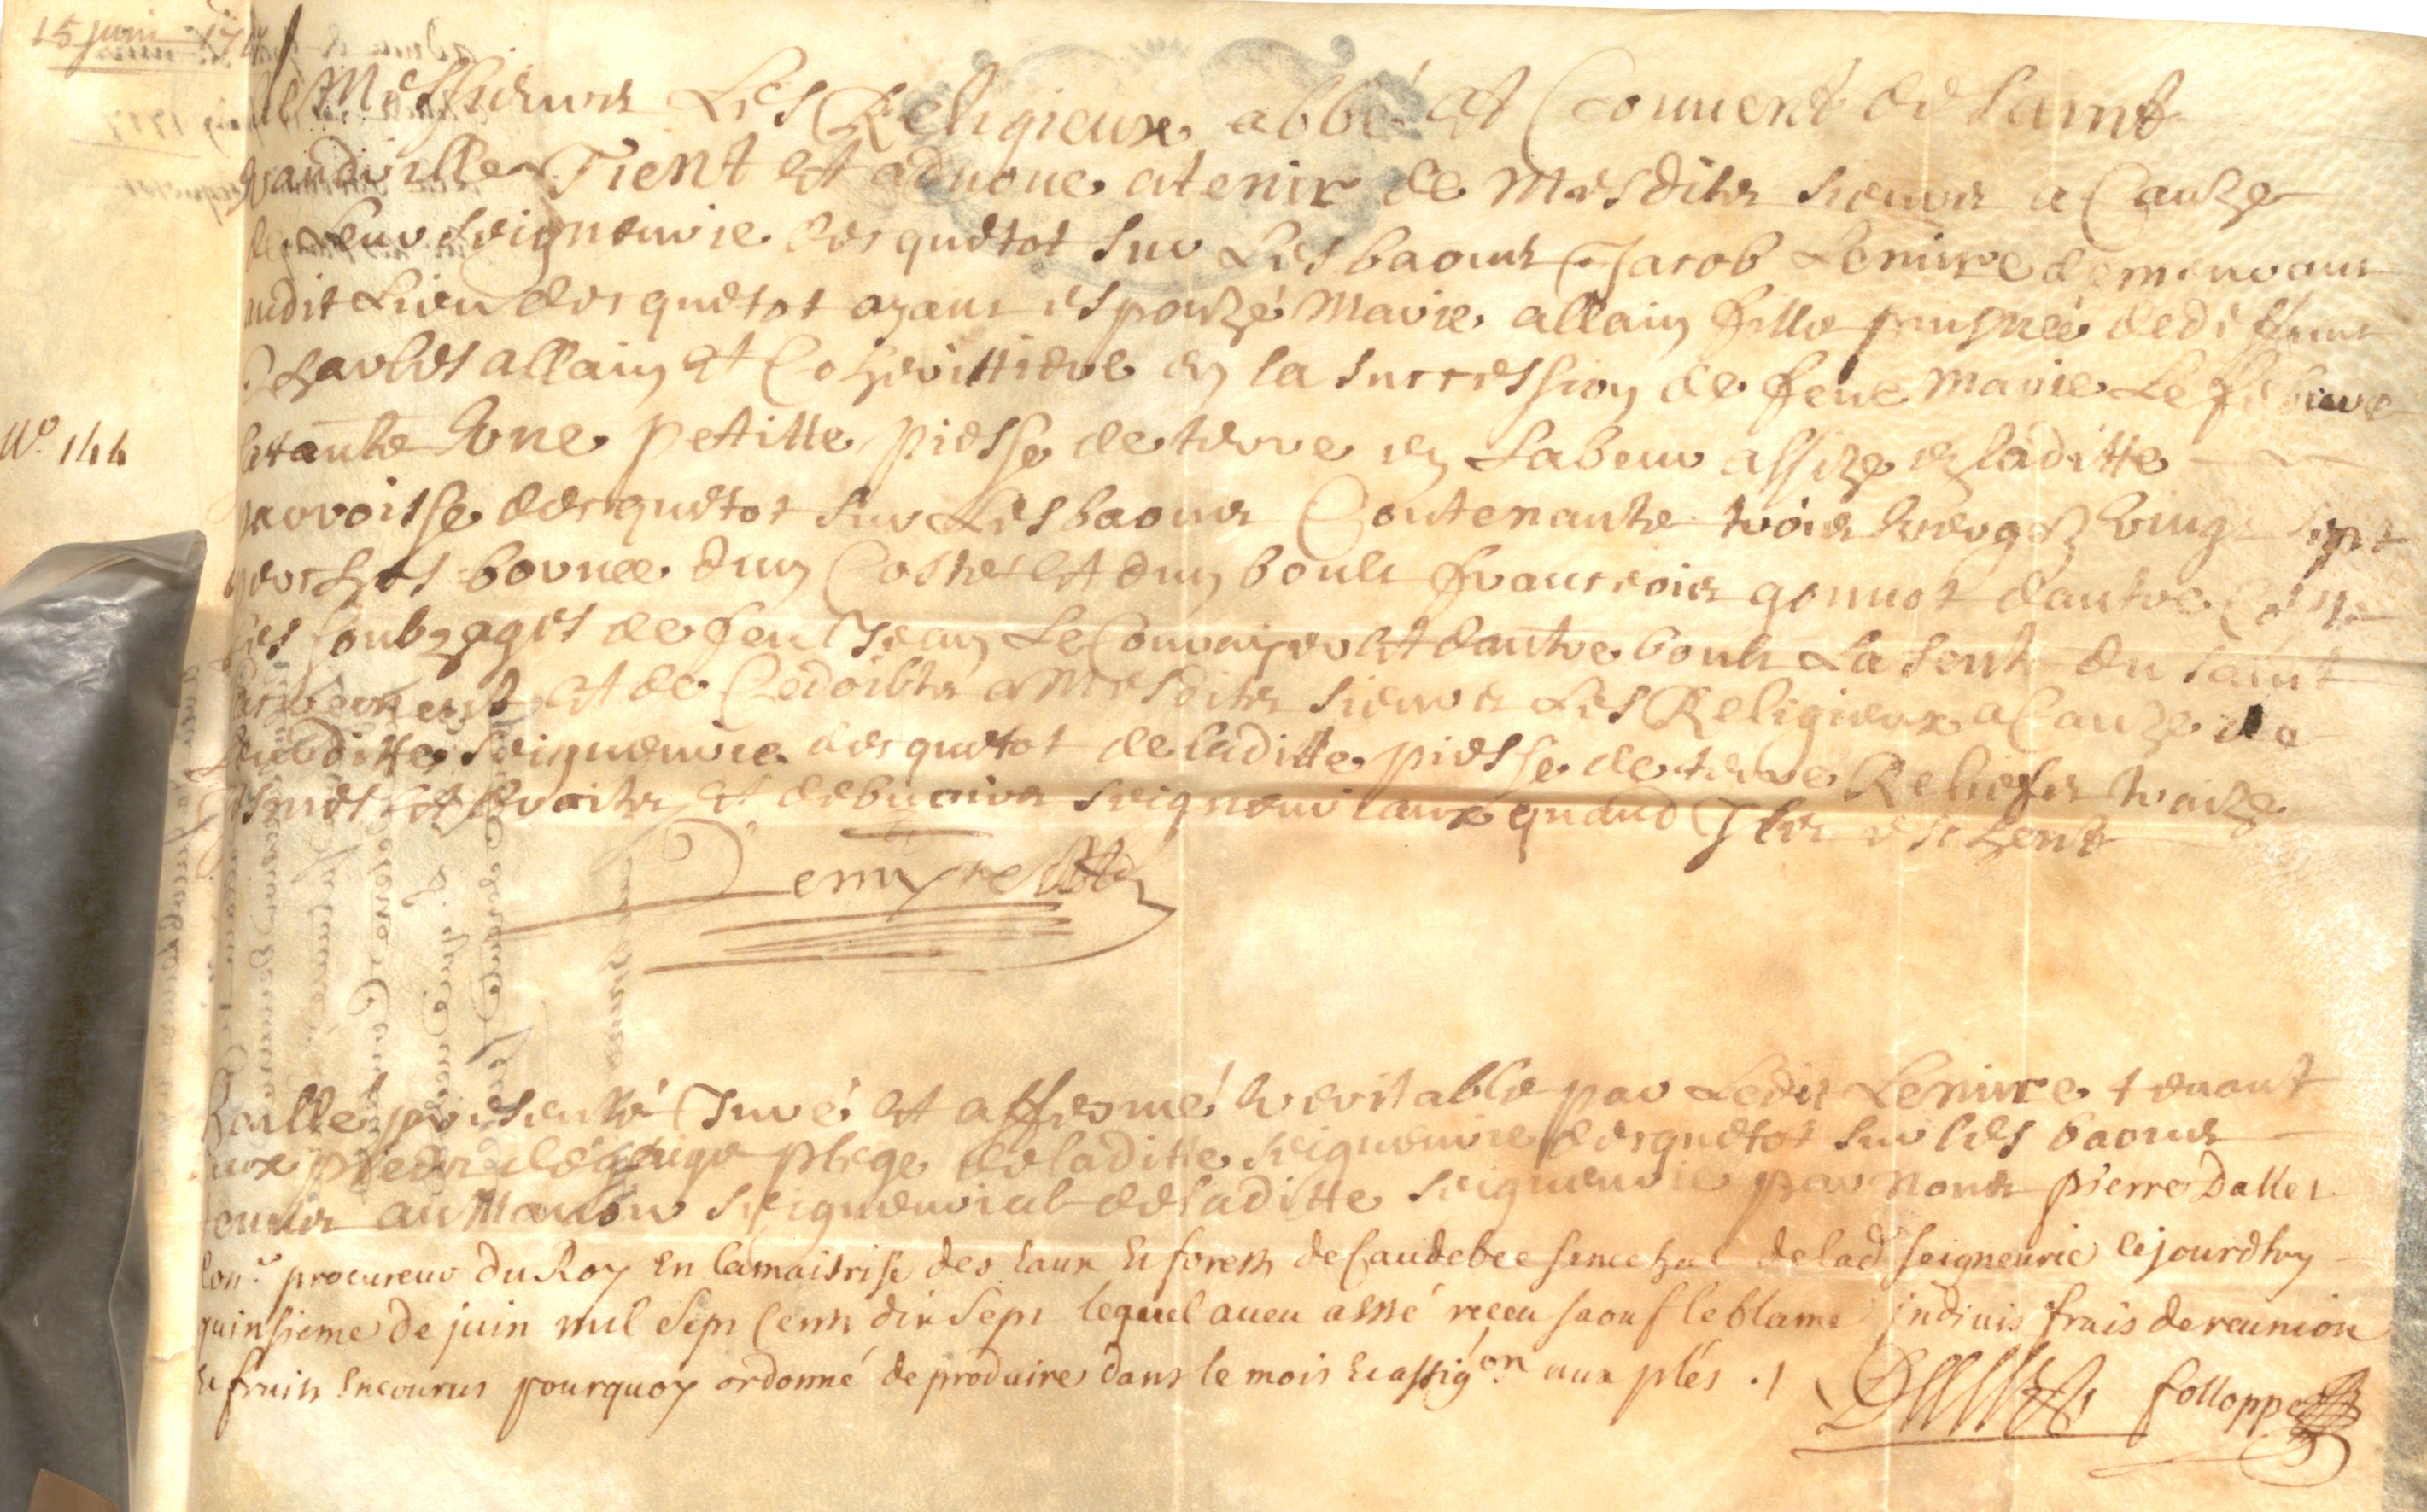 15 juin 1717
De Messieurs Les Religieux abbé et Couvent de Saint
Wandrille Tient et aduoue a tenir de Mesdits sieurs a Cauze
de Leur seigneurie desquetot sur Les baons Jacob Lemire demeurant
audit Lieu desquetot ayant espouzé Marie allain fille puisnée de deffunt
Charles allain et Coherittiere en la succession de feue Marie Le febure
sa tante Vne petitte piesse de terre en Labeur assize en laditte
parroisse desquetot sur Les baons Contenante trois verges vingt sept
perches bornee dun Costé et dun bout francois gonnot dautre Costé
Les soubzagés de feu Jean Le Conuoyeur et dautre bout La sente du saint
et de Ce doibt a Mesdits sieurs Les Religieux a Cauze de
Leurditte seigneurie desquetot de laditte piesse de terre Reliefs traize
et droits et debuoirs seigneuriaux quand Ils eschent
Lemyre
N° 144
Baillé presenté Juré et affermé veritable par Ledit Lemire tenant
aux pieds de gaige plege de laditte seigneurie desquetot sur les baons
tenus au Manoir seigneurial de laditte seigneurie par nous pierre Dallet
Con.er procureur Du Roy En la maitrise des Eaux Et forests de Caudebec senechal de lad seigneurie ce jourdhuy
quinsieme de juin mil Sept Cents dix Sept lequel aueu a esté receu saouf le blame indiuis frais de reunion
Et fruits Encourus pourquoy ordonné de produire dans le mois Et assig.on aux plés ./
Dallet folloppe